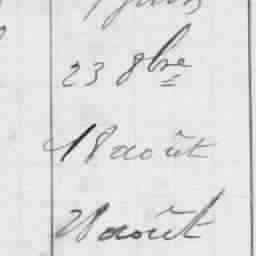 23 8bre
18 août
28 août